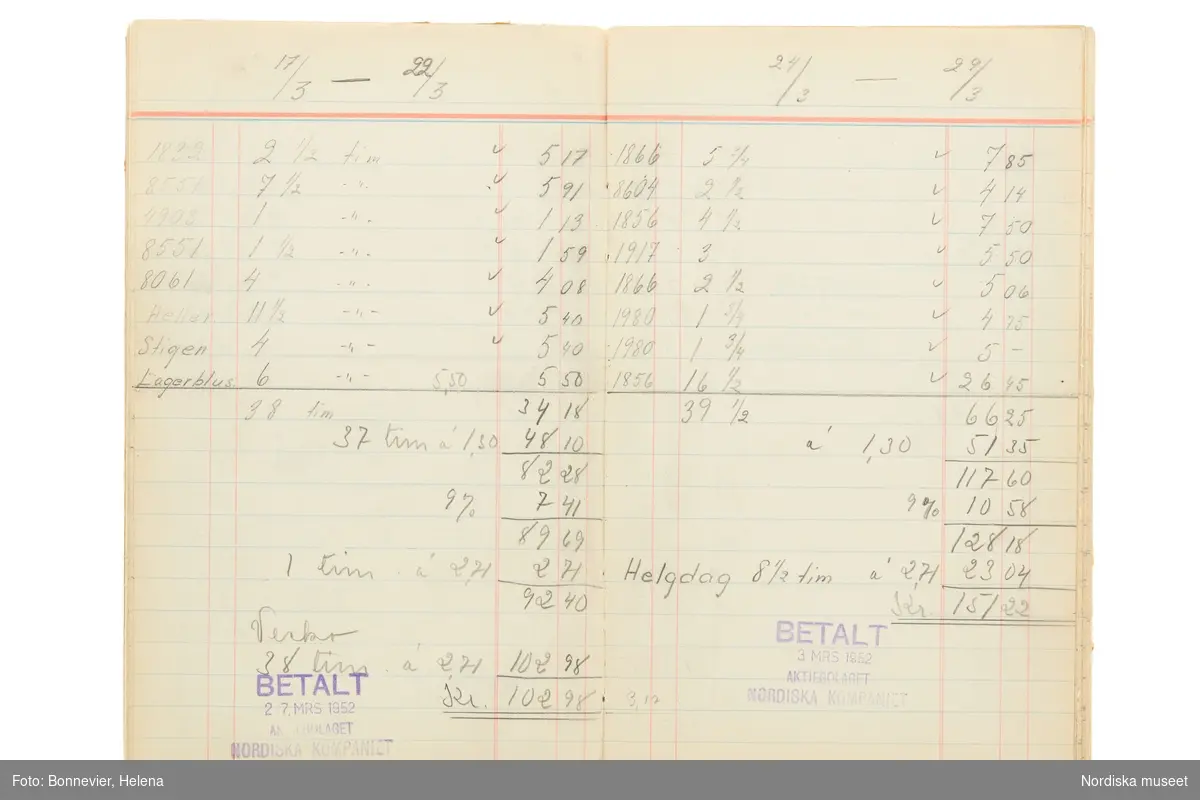 17/3 — 22/3
1822 2 1/2 tim ✓ 5 17
8551 7 1/2 -"- ✓ 5 91
4903 1 -"- ✓ 1 13
8551 1 1/2 -"- ✓ 1 59
8061 4 -"- ✓ 4 08
11 1/2 -"- ✓ 5 40
Stigen 4 -"- ✓ 5 40
Lagerblus 6 -"- 5,50 5 50
38 tim 34 18
37 tim á 1,30 48 10
82 28
9% 7 41
89 69
1 tim á 2,71 2 71
92 40
Verko
38 tim á 2,71 102 98
Kr. 102 98
BETALT
27. MRS 1952
AKTIEBOLAGET
NORDISKA KOMPANIET
24/3 — 29/3
1866 5 3/4 ✓ 7 85
8604 2 1/2 ✓ 4 14
1856 4 1/2 ✓ 7 50
1917 3 ✓ 5 50
1866 2 1/2 ✓ 5 06
1980 1 3/4 ✓ 4 75
1980 1 3/4 ✓ 5 -
1856 16 1/2 ✓ 26 45
39 1/2 66 25
á 1,30 51 35
117 60
9% 10 58
128 18
Helgdag 8 1/2 tim á 2,71 23 04
Kr. 151 22
BETALT
3 MRS 1952
AKTIEBOLAGET
NORDISKA KOMPANIET
Foto: Bonnevier, Helena
Nordiska museet